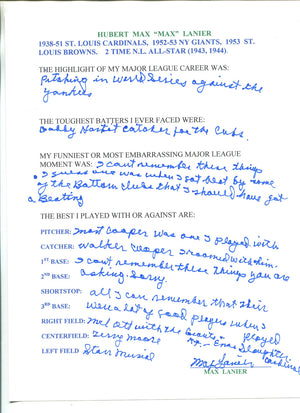 HUBERT MAX "MAX" LANIER
1938-51 ST. LOUIS CARDINALS, 1952-53 NY GIANTS, 1953 ST.
LOUIS BROWNS. 2 TIME N.L. ALL-STAR (1943, 1944).
THE HIGHLIGHT OF MY MAJOR LEAGUE CAREER WAS:
Pitching in World Series against the
Yankees
THE TOUGHEST BATTERS I EVER FACED WERE:
Gabby Hartnett catcher for the Cubs.
MY FUNNIEST OR MOST EMBARRASSING MAJOR LEAGUE
MOMENT WAS: I can't remember these things
I guess one was when I got beat by some
of the Bottom clubs that I should have got
a Beating
THE BEST I PLAYED WITH OR AGAINST ARE:
PITCHER: Mort Cooper was one I played with
CATCHER: Walker Cooper I roomed with him.
1ST BASE: I can't remember these things you are
2ND BASE: asking. Sorry.
SHORTSTOP: all I can remember that their
3RD BASE: were a lot of good players when I
played
RIGHT FIELD: Mel Ott with the Giants + Enos Slaughter
Cardinals
CENTERFIELD: Terry Moore
LEFT FIELD Stan Musial
Max Lanier
MAX LANIER